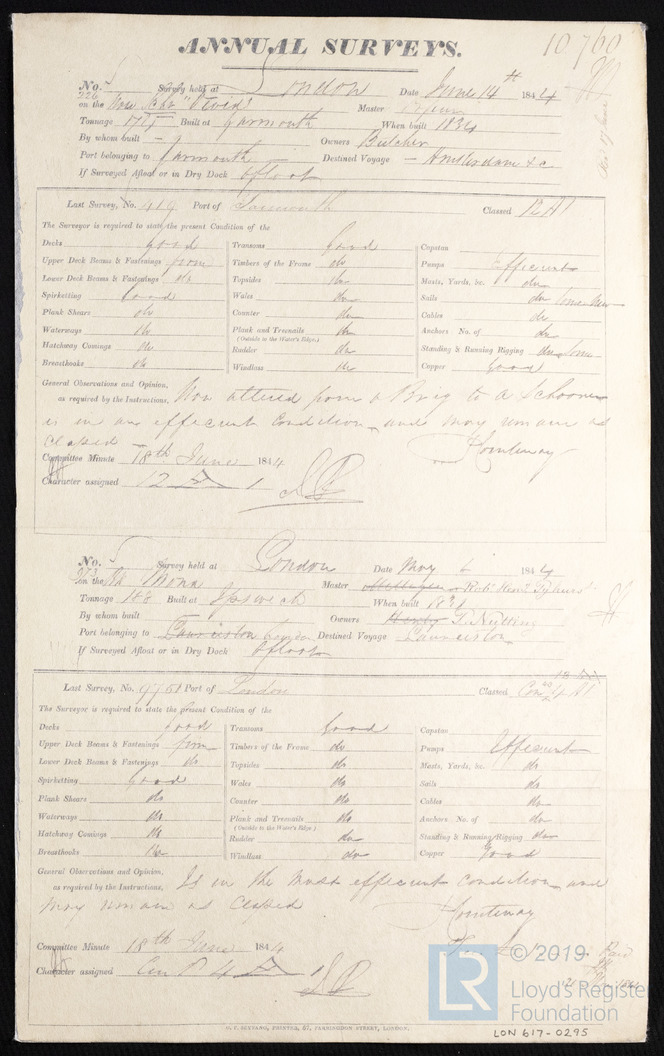 10760
ANNUAL SURVEYS.
No. Survey held at London Date June 14th 1844
on the "Ovid" Master
Tonnage 175 Built at Yarmouth When built 1834
By whom built – Owners Butcher
Port belonging to Yarmouth Destined Voyage – Amsterdam &c
If Surveyed Afloat or in Dry Dock Afloat
Last Survey, No. 419 Port of Yarmouth Classed 12 A1
The Surveyor is required to state the present Condition of the
Decks good
Upper Deck Beams & Fastenings firm
Lower Deck Beams & Fastenings do
Spirketting Good
Plank Shears do
Waterways do
Hatchway Comings do
Breasthooks do
Transoms Good
Timbers of the Frame do
Topsides do
Wales do
Counter do
Plank and Treenails do
(Outside to the Water's Edge.)
Rudder do
Windlass do
Capstan
Pumps Efficient
Masts, Yards, &c. do
Sails do Some New
Cables do
Anchors No. of do
Standing & Running Rigging do Some
Copper Good
General Observations and Opinion,
as required by the Instructions, Now altered from a Brig to a Schooner
is in an efficient Condition and may remain as
Classed
Committee Minute 18th June 1844
Character assigned 12 A 1
No. Survey held at London Date May 1844
on the Mona Master
Tonnage 188 Built at Ipswich When built 1831
By whom built Owners Henry T. Nutting
Port belonging to Launceston London Destined Voyage Launceston
If Surveyed Afloat or in Dry Dock Afloat
Last Survey, No. 9751 Port of London Classed A1
The Surveyor is required to state the present Condition of the
Decks Good
Upper Deck Beams & Fastenings firm
Lower Deck Beams & Fastenings do
Spirketting Good
Plank Shears do
Waterways do
Hatchway Comings do
Breasthooks do
Transoms Good
Timbers of the Frame do
Topsides do
Wales do
Counter do
Plank and Treenails do
(Outside to the Water's Edge.)
Rudder do
Windlass do
Capstan
Pumps Efficient
Masts, Yards, &c. do
Sails do
Cables do
Anchors No. of do
Standing & Running Rigging do
Copper Good
General Observations and Opinion,
as required by the Instructions, Is in the most efficient condition and
may remain as Classed
Committee Minute 18th June 1844
Character assigned Con 4 A 1
© 2019
LR
Lloyd's Register
Foundation
LON 617-0295